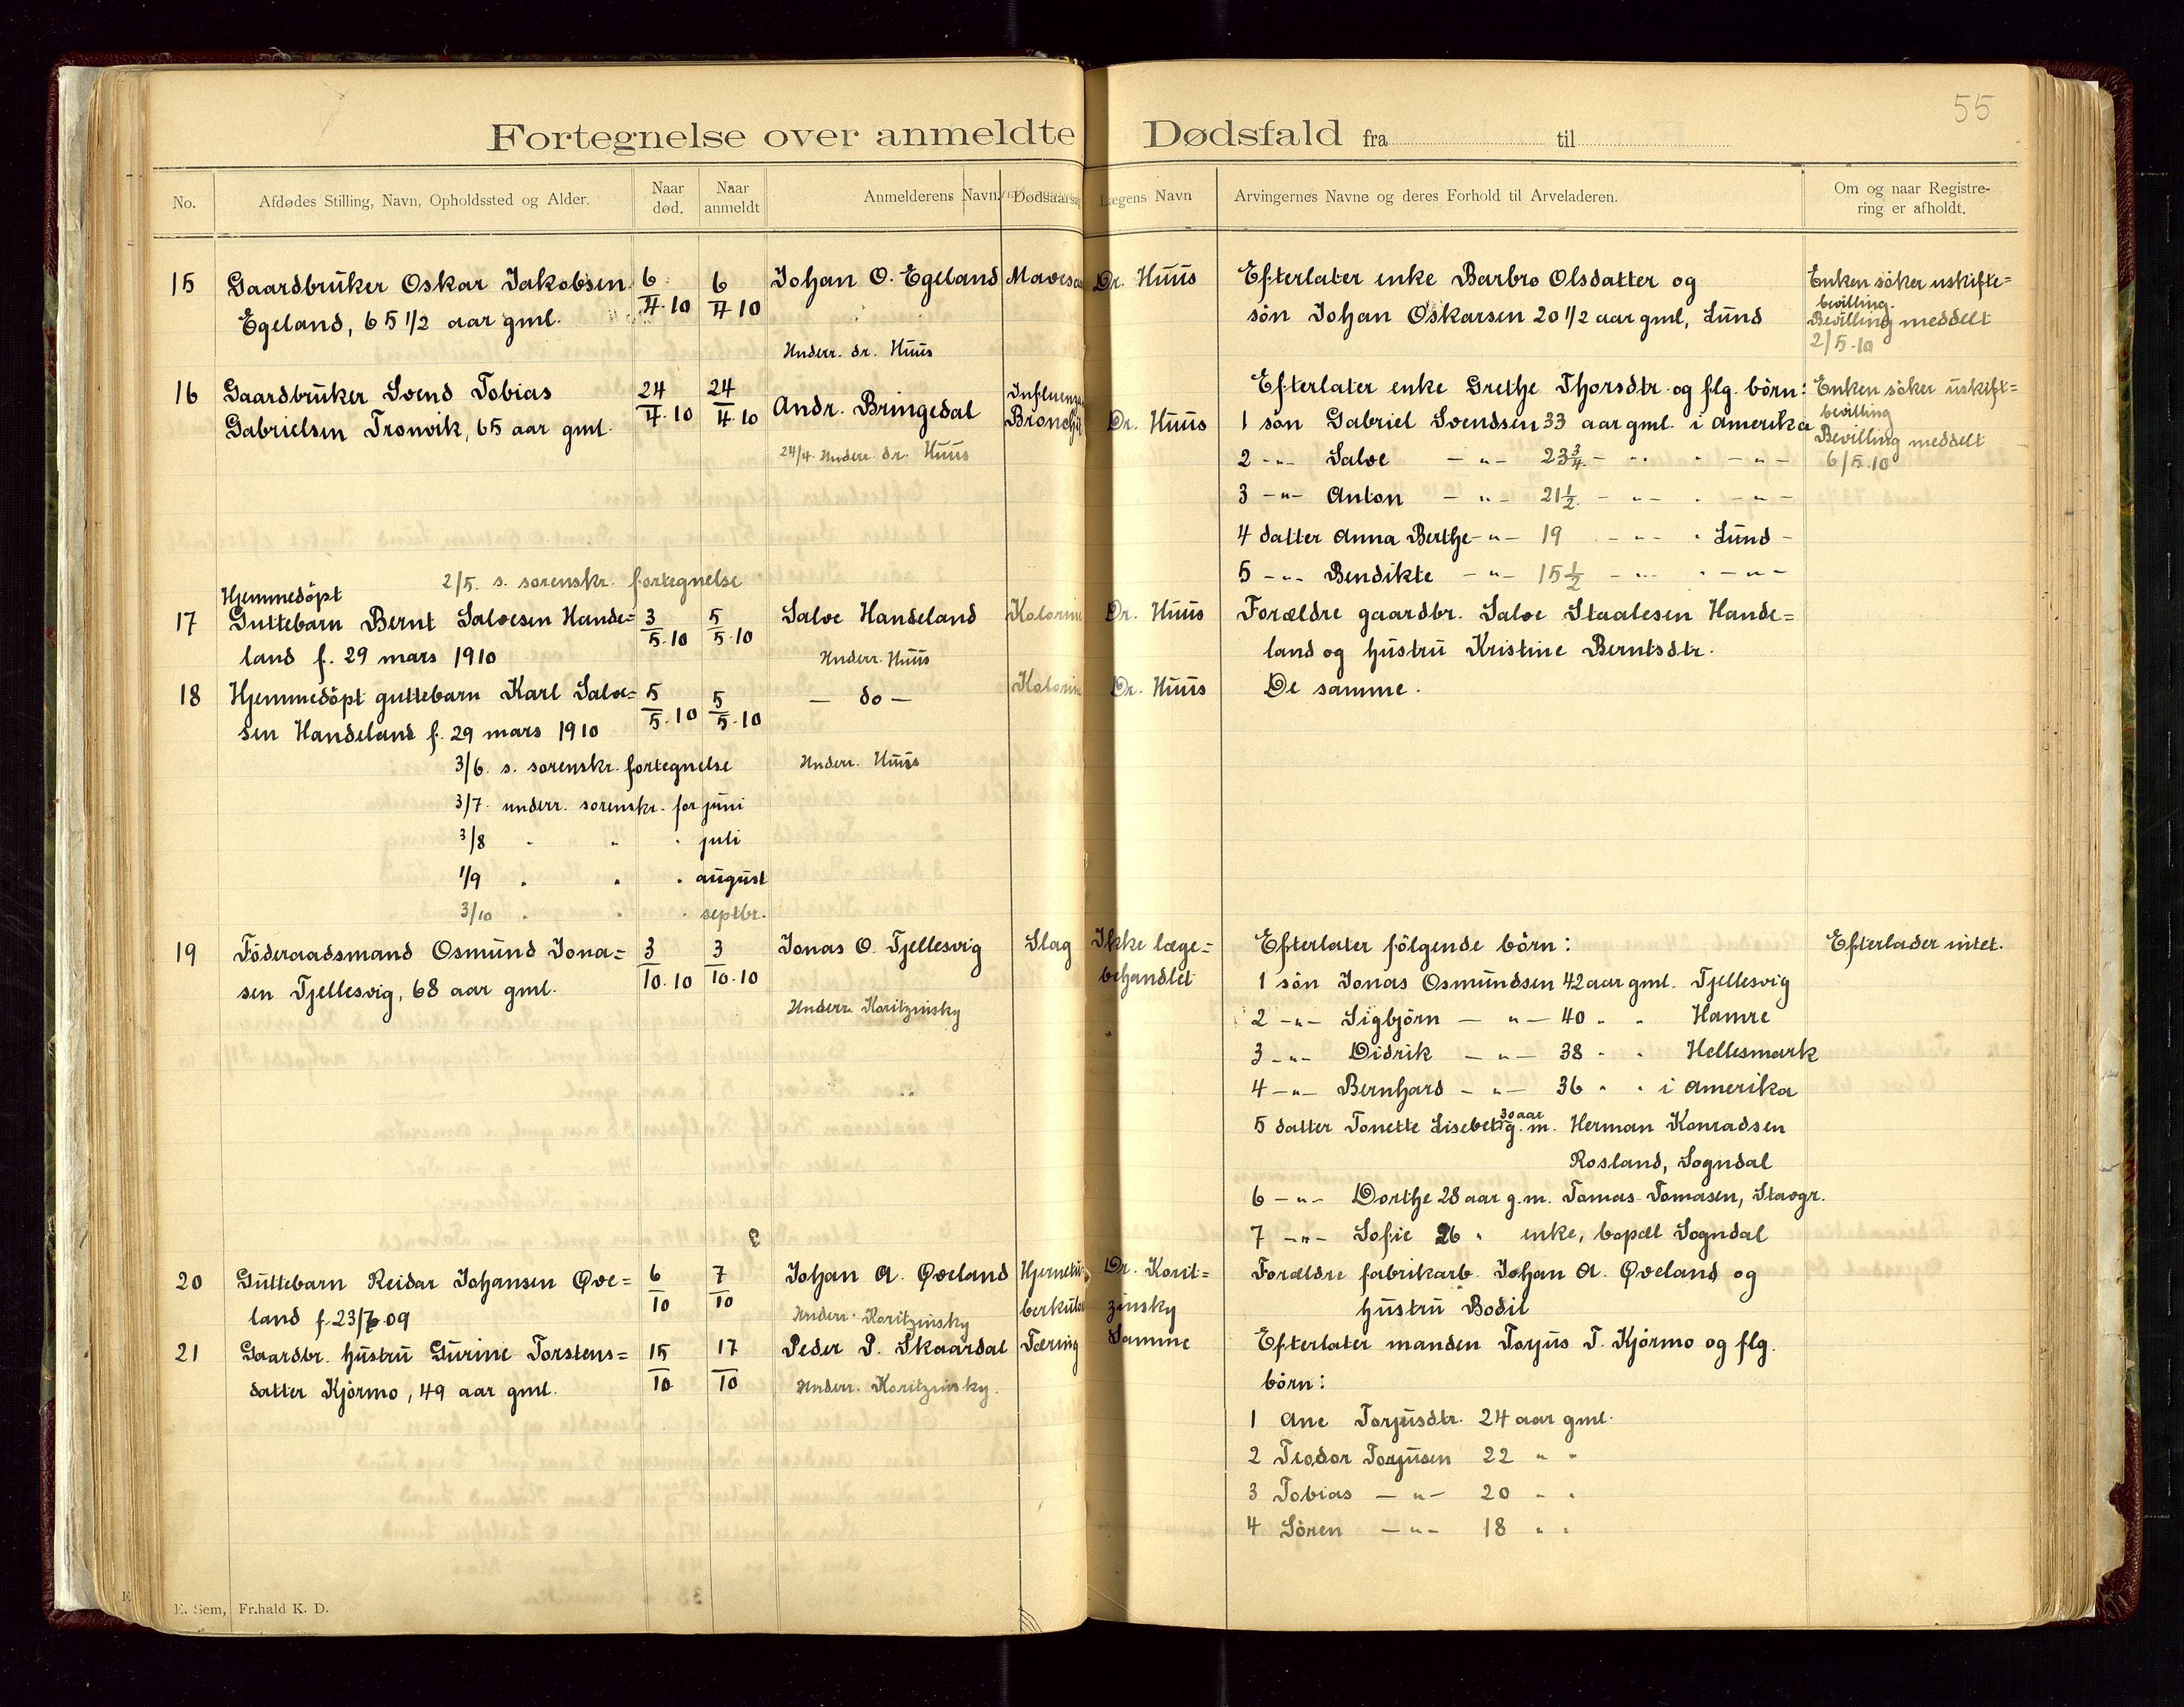 55
Fortegnelse over anmeldte Dødsfald fra til
No. Afdødes Stilling, Navn, Opholdssted og Alder. Naar død. Naar anmeldt Anmelderens Navn. Dødsaarsag Lægens Navn Arvingernes Navne og deres Forhold til Arveladeren. Om og naar Registrering er afholdt.
15 Gaardbruker Oskar Jakobsen 6/4.10 6/4.10 Johan O. Egeland Dr. Huus Efterlater enke Barbro Olsdatter og Enken söker uskifte=
Egeland, 65 1/2 aar gml. sön Johan Oskarsen 20 1/2 aar gml, Lund bevilling.
Bevilling meddelt
Underr. dr. Huus 2/5.10
16 Gaardbruker Svend Tobias 24/4.10 24/4.10 Andr. Bringedal Efterlater enke Grethe Thorsdtr. og flg. börn: Enken söker uskift=
Gabrielsen Tronvik, 65 aar gml. Dr. Huus 1 sön Gabriel Svendsen 33 aar gml. i Amerika bevilling
24/4. Underr. dr. Huus Bevilling meddelt
2 -"- Salve -"- 23 3/4 - " - " - " - 6/5.10
3 -"- Anton -"- 21 1/2 - " - " - " -
4 datter Anna Berthe -"- 19 - " - " Lund -
2/5. s. sorenskr. fortegnelse 5 -"- Bendikte -"- 15 1/2 - " - " - " -
Hjemmedöpt
17 Guttebarn Bernt Salvesen Hande= 3/5.10 5/5.10 Salve Handeland Dr. Huus Forældre gaardbr. Salve Staalesen Hande=
land f. 29 mars 1910 Underr. Huus land og hustru Kristine Berntsdtr.
18 Hjemmedöpt guttebarn Karl Salve= 5/5.10 5/5.10 - do - Dr. Huus De samme.
sen Handeland f. 29 mars 1910
3/6. s. sorenskr. fortegnelse Underr. Huus
3/7. underr. sorenskr. for juni
3/8 " " " juli
1/9 " " " august
3/10 " " " septbr.
19 Föderaadsmand Osmund Jona= 3/10.10 3/10.10 Jonas O. Tjellesvig Slag Ikke læge= Efterlater fölgende börn: Efterlader intet.
sen Tjellesvig, 68 aar gml. behandlet 1 sön Jonas Osmundsen 42 aar gml. Tjellesvig
Underr. Koritzinsky 2 -"- Sigbjörn -"- 40 " " Hamre
3 -"- Didrik -"- 38 " " Hellesmark
4 -"- Bernhard -"- 36 " " i Amerika
30 aar
5 datter Tonette Lisebet g. m. Herman Konradsen
Rosland, Sogndal
6 -"- Dorthe 28 aar g.m. Tomas Tomasen, Stavgr.
7 -"- Sofie 26 " enke, bopæl Sogndal
20 Guttebarn Reidar Johansen Qve= 6/10 7/10 Johan A. Qveland Dr. Korit= Forældre fabrikarb. Johan A. Qveland og
land f. 23/7 09 Underr. Koritzinsky zinsky hustru Bodil
21 Gaardbr. hustru Gurine Torstens= 15/10 17/10 Peder P. Skaardal Tæring Samme Efterlater manden Torjus T. Kjörmo og flg.
datter Kjörmo, 49 aar gml. Underr. Koritzinsky. börn:
1 Ane Torjusdtr. 24 aar gml.
2 Teodor Torjusen 22 " "
3 Tobias -"- 20 " "
4 Sören -"- 18 " "
E. Sem, Fr.hald K. D.